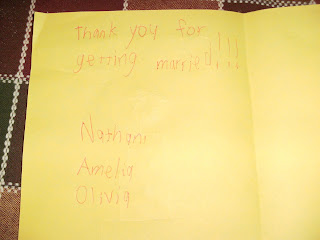 thank you for
getting married!!!
Nathan
Amelia
Olivia